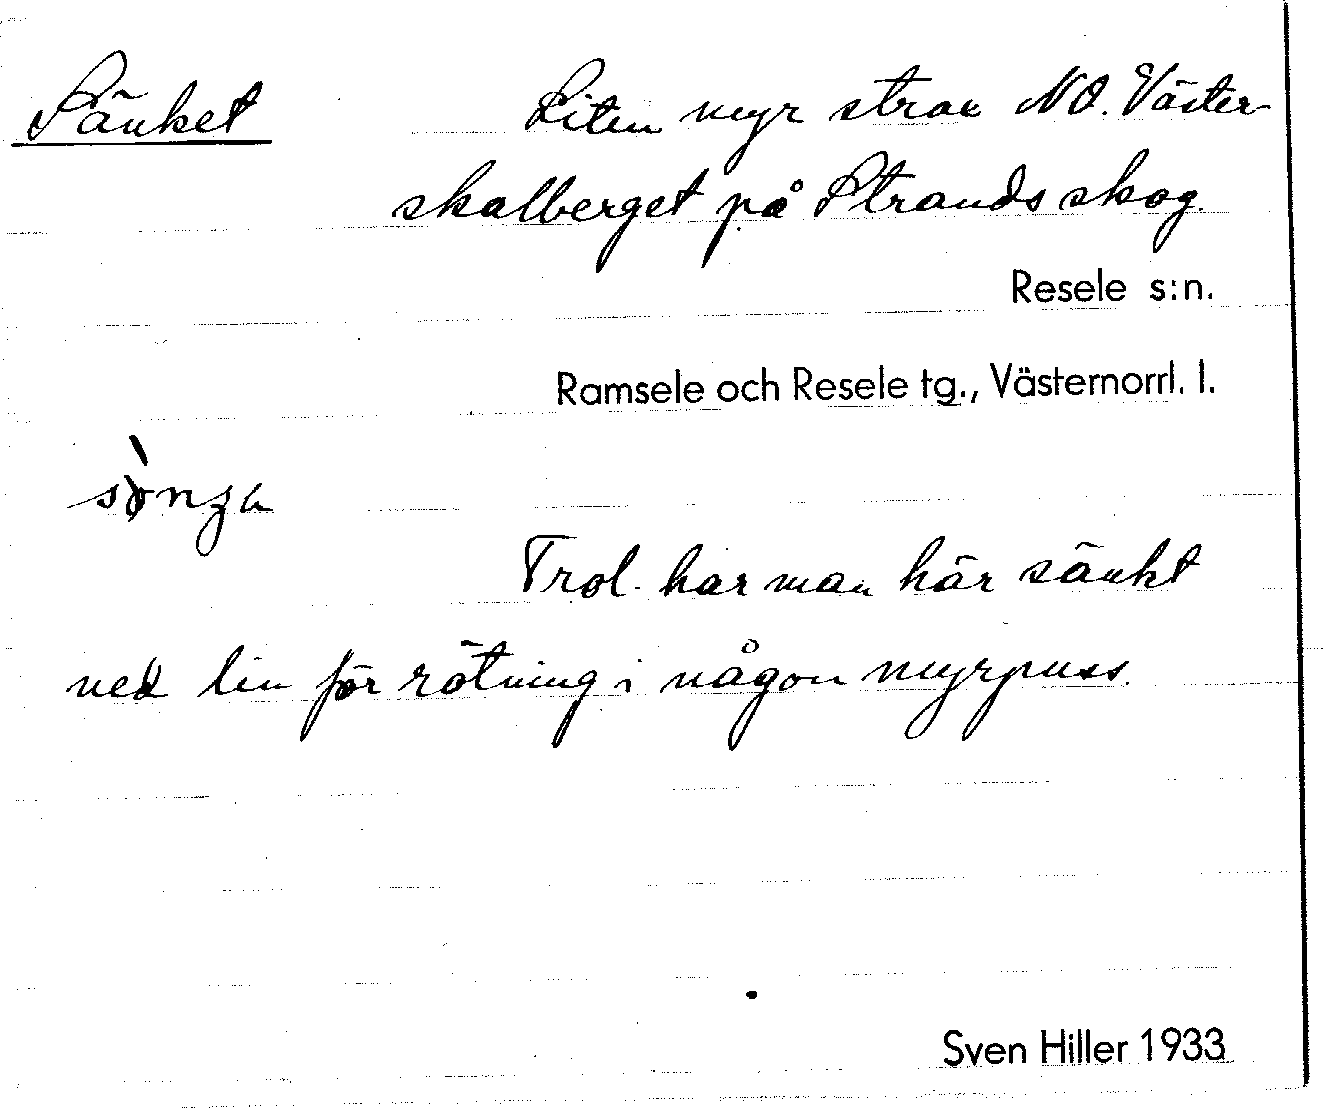 Sänket Liten myr strax NO. Väster-
skalberget på Strands skog.
Resele s:n.
Ramsele och Resele tg., Västernorrl. l.
Trol. har man här sänkt
ned lin för rötning i någon myrpuss.
Sven Hiller 1933